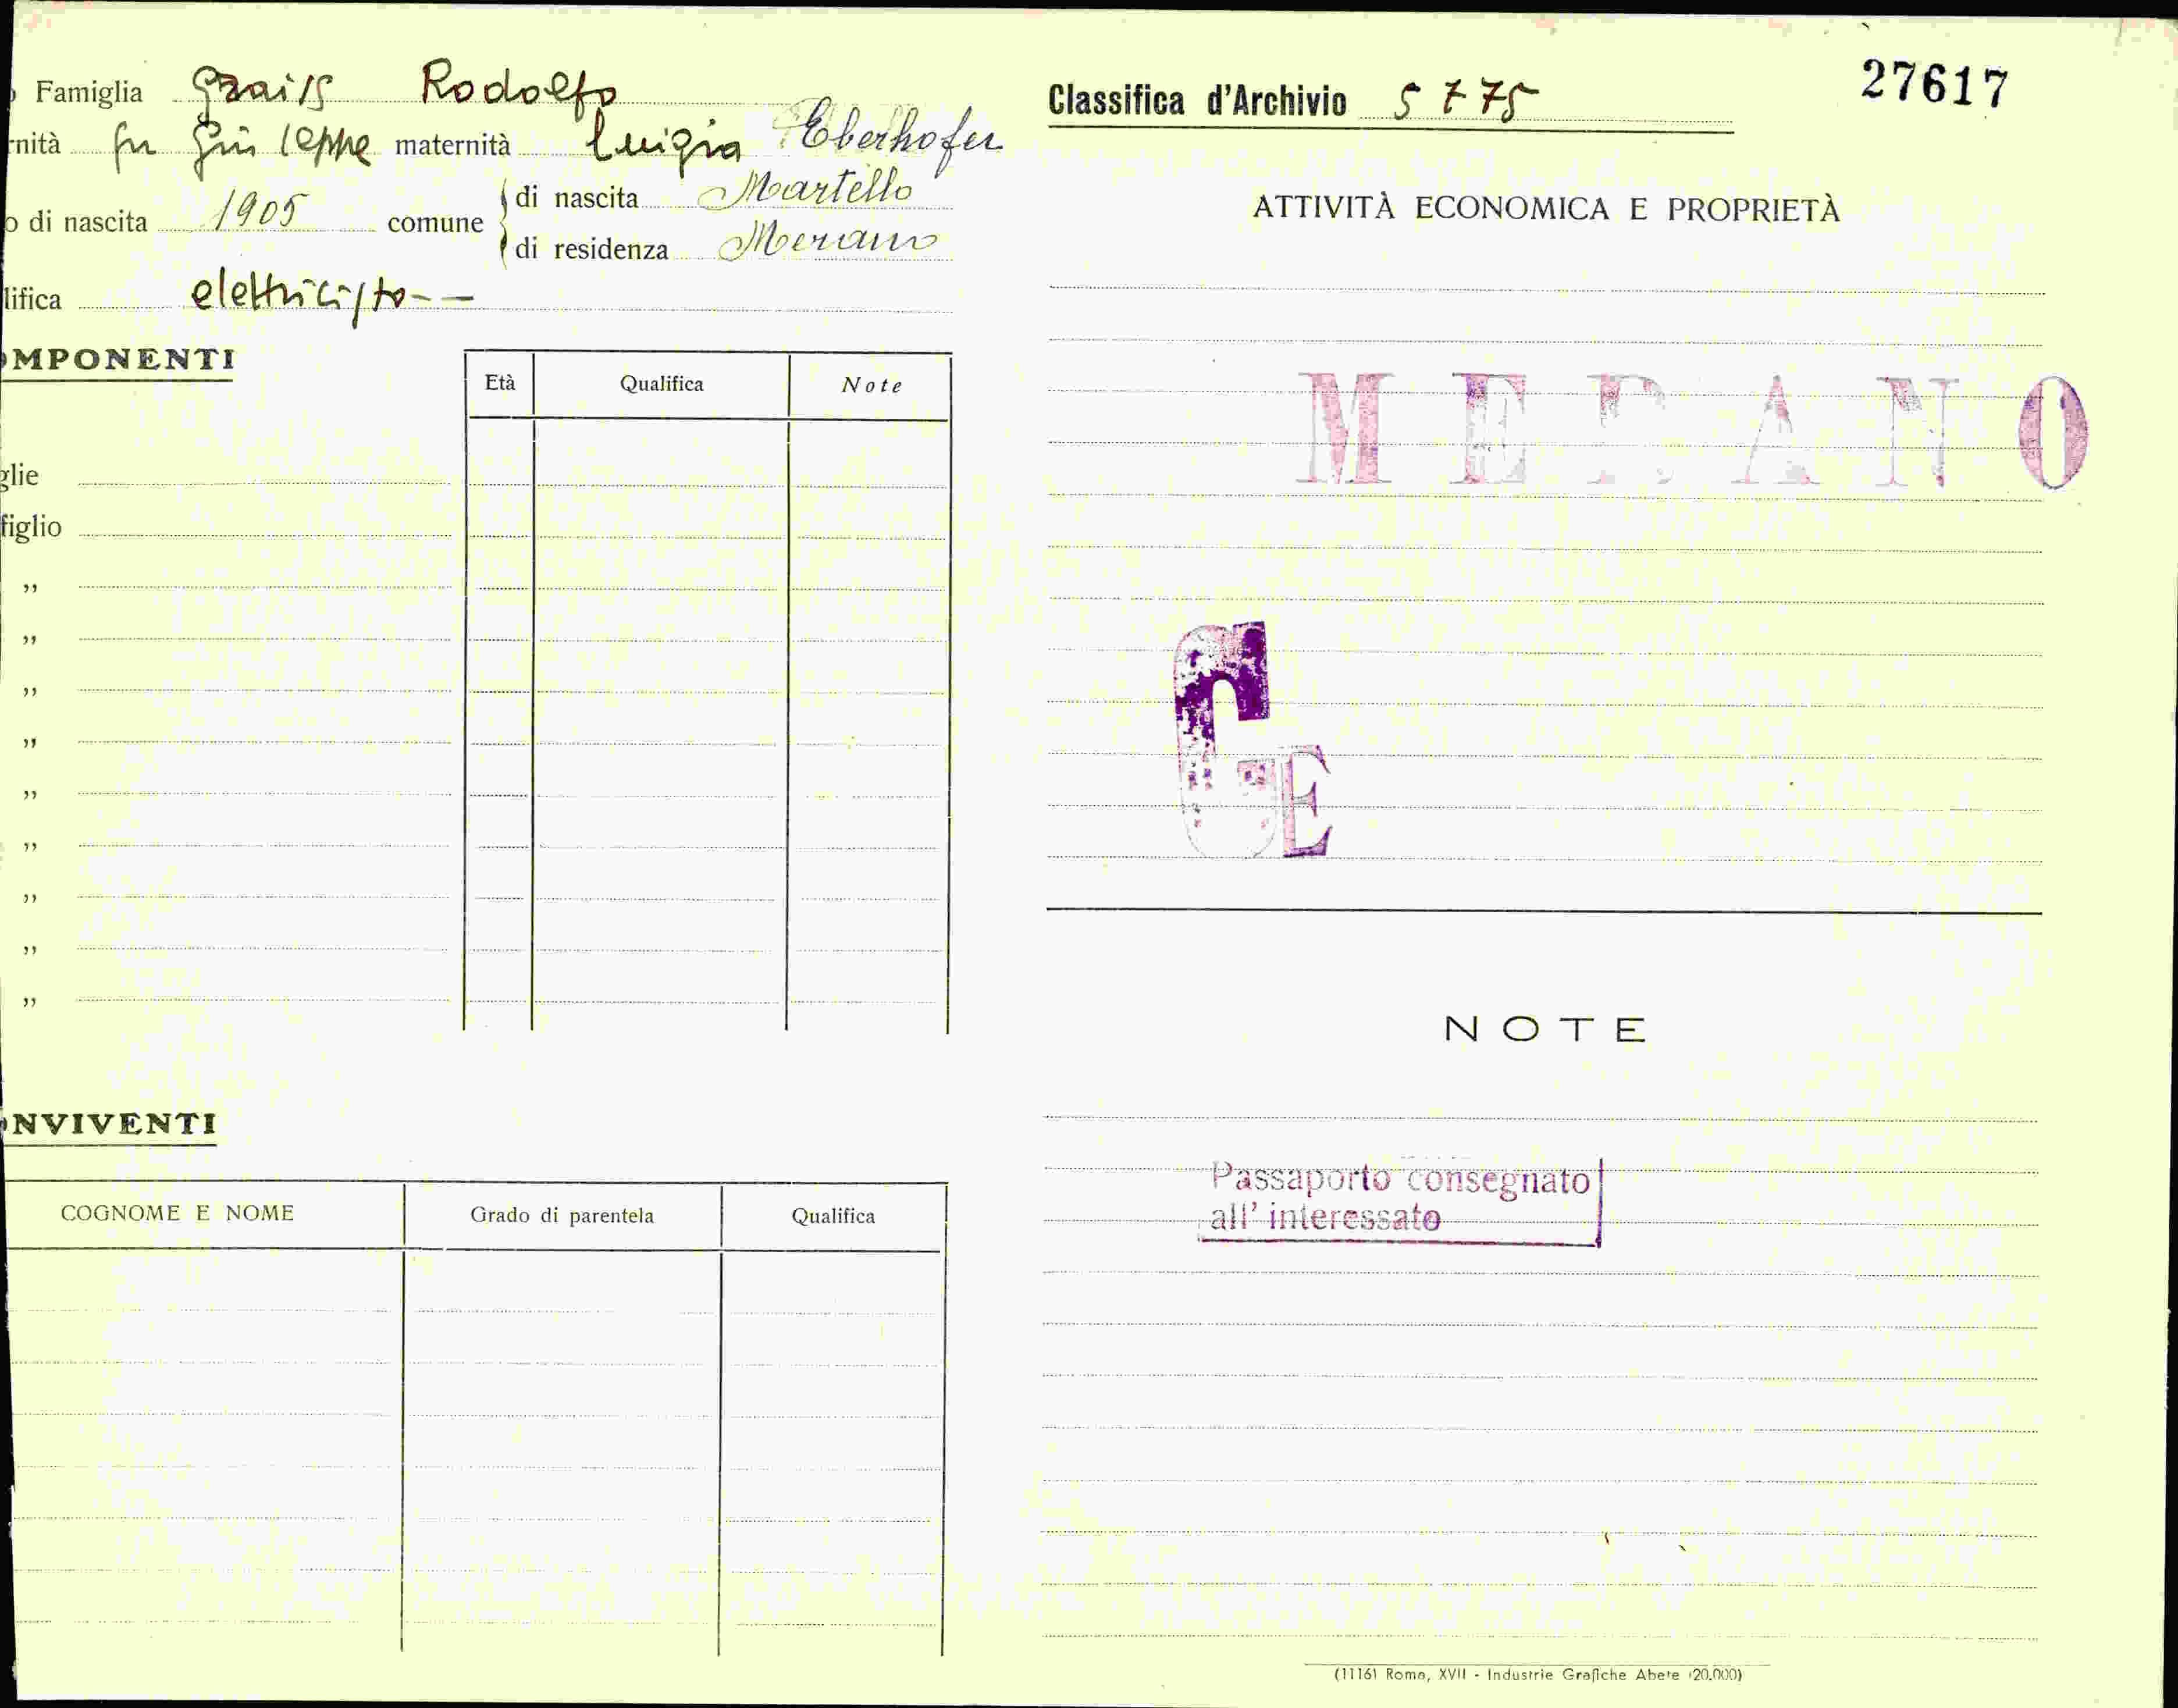 Famiglia Graiss Rodolfo
nità fu Giuseppe maternità Luigia Eberhofer
o di nascita 1905 comune di nascita Martello
di residenza Merano
lifica elettricista - —
OMPONENTI
Età Qualifica Note
glie
figlio
„
„
„
„
„
„
„
„
„
ONVIVENTI
COGNOME E NOME Grado di parentela Qualifica
Classifica d'Archivio 5775
27617
ATTIVITÀ ECONOMICA E PROPRIETÀ
MERANO
G E
NOTE
Passaporto consegnato
all' interessato
(1116) Roma, XVII - Industrie Grafiche Abete (20.000)